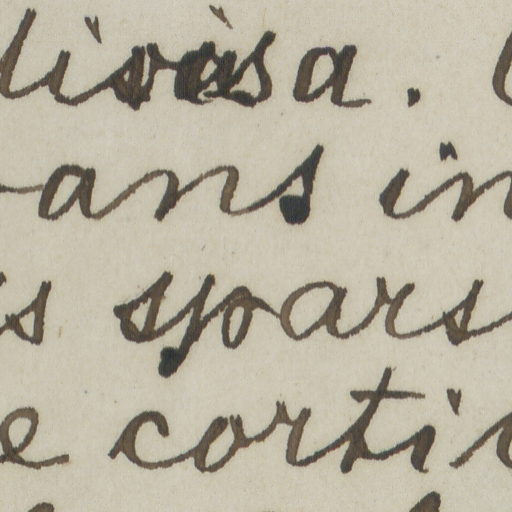 divisa.
ans in
s spars
e cortic